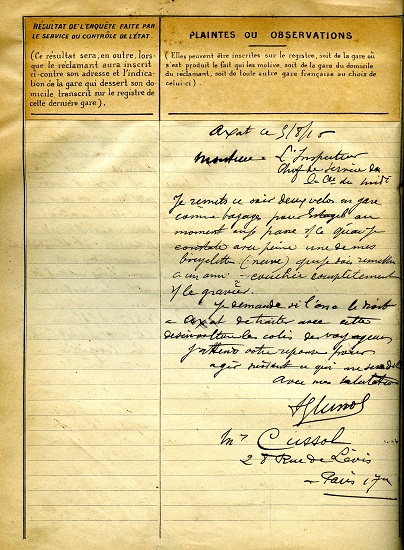 RÉSULTAT DE L'ENQUÊTE FAITE PAR
LE SERVICE DU CONTRÔLE DE L'ÉTAT.
(Ce résultat sera, en outre, lors-
que le réclamant aura inscrit
ci-contre son adresse et l'indica-
tion de la gare qui dessert son do-
micile transcrit sur le registre de
cette dernière gare).
PLAINTES OU OBSERVATIONS
(Elles peuvent être inscrites sur le registre, soit de la gare où
s'est produit le fait qui les motive, soit de la gare du domicile
du réclamant, soit de toute autre gare française au choix de
celui-ci).
Axat ce
Monsieur L'Inspecteur
de service
la Cie du Midi
Je remets ce soir deux vélos en gare
comme bagages pour au
moment
constate avec peine une de mes
bicyclette (neuve) que je dois remettre
a un ami - couchée complètement
le gravier
Je demande si l'on a le droit
a Axat de traiter avec cette
désinvolture les colis des voyageurs
J'attend votre réponse pour
agir ce qui me
avec mes salutations
Mr Cussol
28 Rue de Lévis
Paris 17